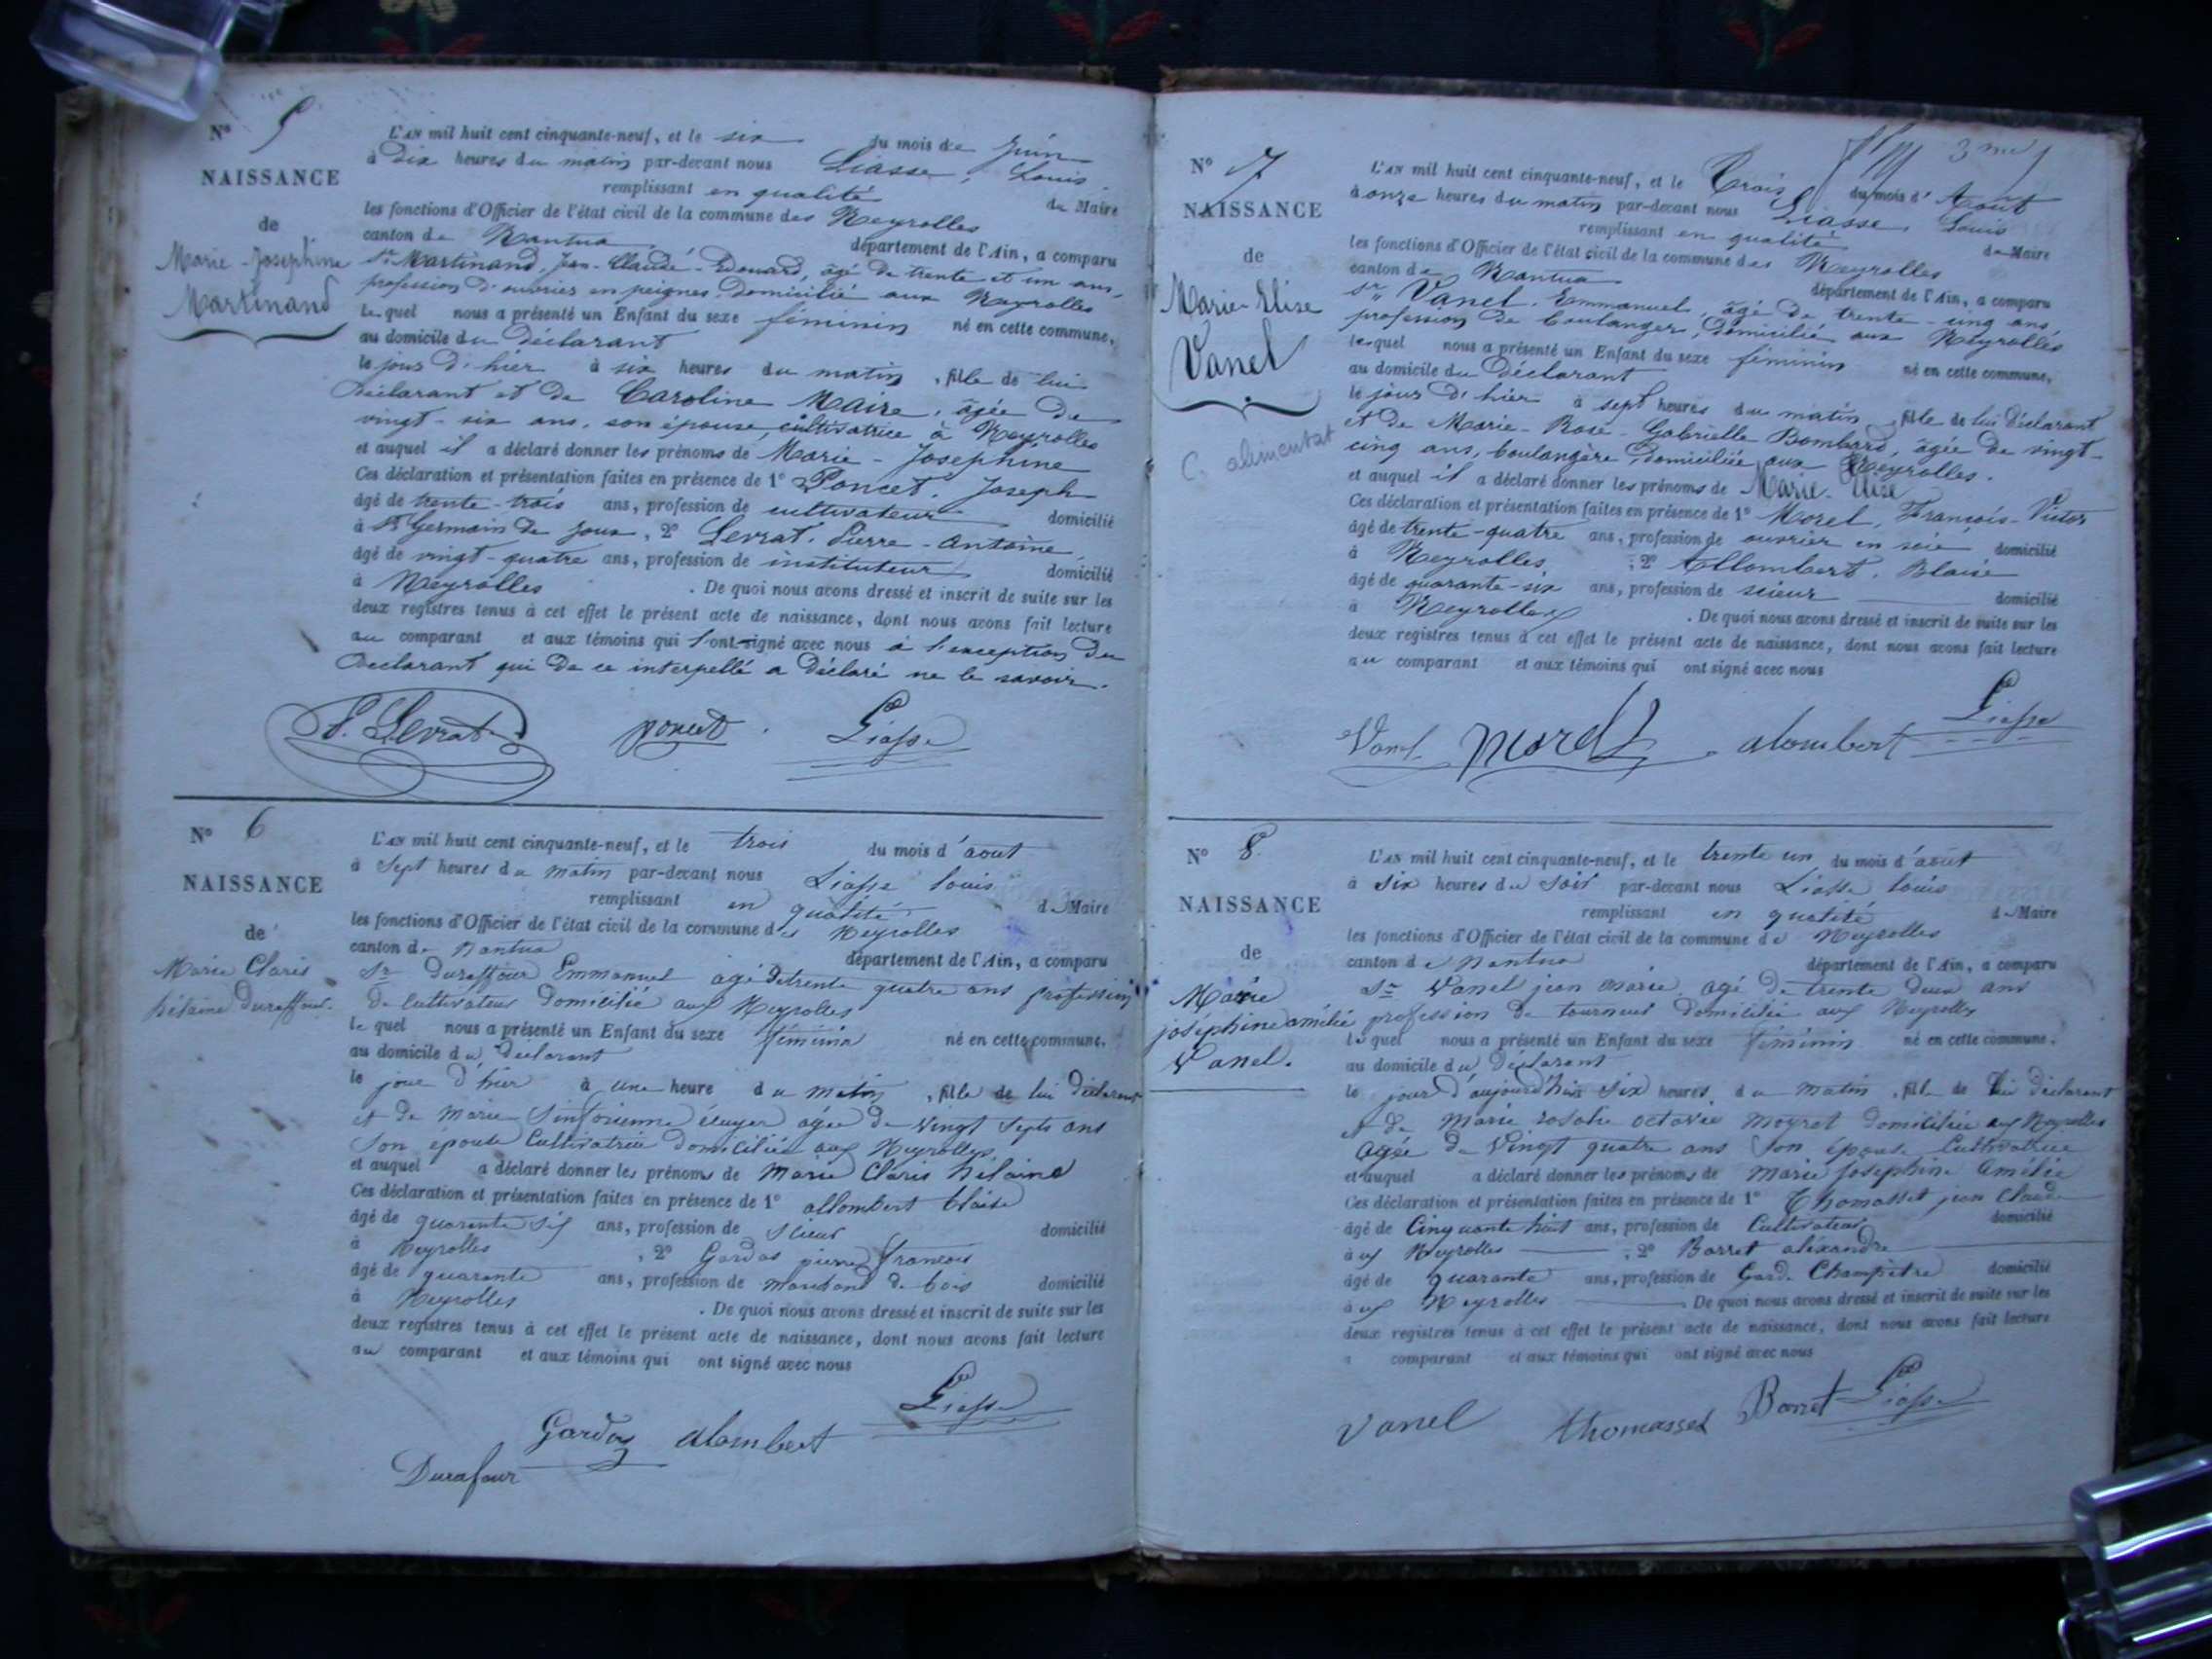 N° 5
NAISSANCE
de
Marie-Josephine
Martinand
L'AN mil huit cent cinquante-neuf, et le six du mois de Juin
à dix heures du matin par-devant nous Liasse, Louis
remplissant en qualité de Maire
les fonctions d'Officier de l'état civil de la commune des Neyrolles
canton de Nantua département de l'Ain, a comparu
Sr Martinand, Jean-Claude-Edouard, âgé de trente et un ans,
profession d'ouvrier en peignes, domicilié aux Neyrolles
lequel nous a présenté un Enfant du sexe féminin né en cette commune,
au domicile du déclarant
le jour d'hier à six heures du matin, fille de lui
déclarant et de Caroline Maire, âgée de
vingt-six ans, son épouse, cultivatrice à Neyrolles
et auquel il a déclaré donner les prénoms de Marie-Josephine
Ces déclaration et présentation faites en présence de 1° Poncet, Joseph
âgé de trente-trois ans, profession de cultivateur domicilié
à St Germain de Joux, 2° Levrat, Pierre-Antoine,
âgé de vingt-quatre ans, profession de instituteur domicilié
à Neyrolles. De quoi nous avons dressé et inscrit de suite sur les
deux registres tenus à cet effet le présent acte de naissance, dont nous avons fait lecture
au comparant et aux témoins qui l'ont signé avec nous à l'exception du
déclarant qui de ce interpellé a déclaré ne le savoir.
P. Levrat poncet Liasse
N° 6
NAISSANCE
de
Marie Claris
hélaine Duraffour.
L'AN mil huit cent cinquante-neuf, et le trois du mois d'aout
à Sept heures du matin par-devant nous Liasse louis
remplissant en qualité de Maire
les fonctions d'Officier de l'état civil de la commune des Neyrolles
canton de Nantua département de l'Ain, a comparu
Sr duraffour Emmanuel agé de trente quatre ans profession
de Cultivateur domicilié aux Neyrolles
lequel nous a présenté un Enfant du sexe féminin né en cette commune,
au domicile du déclarant
le jour d'hier à une heure du matin, fille de lui déclarant
et de Marie Sinforienne agée de vingt Septs ans
Son épouse Cultivatrice domiciliée aux Neyrolles
et auquel a déclaré donner les prénoms de Marie Claris hélaine
Ces déclaration et présentation faites en présence de 1° allombert blaise
âgé de quarante six ans, profession de Scieur domicilié
à Neyrolles, 2° Gardas pierre francois
âgé de quarante ans, profession de marchand de bois domicilié
à Neyrolles. De quoi nous avons dressé et inscrit de suite sur les
deux registres tenus à cet effet le présent acte de naissance, dont nous avons fait lecture
au comparant et aux témoins qui ont signé avec nous
Gardas alombert Liasse
Durafour
3me
N° 7
NAISSANCE
de
Marie-Elise
Vanel
C. alimentat
L'AN mil huit cent cinquante-neuf, et le Trois du mois d'Août
à onze heures du matin par-devant nous Liasse, Louis
remplissant en qualité de Maire
les fonctions d'Officier de l'état civil de la commune des Neyrolles
canton de Nantua département de l'Ain, a comparu
Sr Vanel, Emmanuel, âgé de trente-cinq ans,
profession de boulanger, domicilié aux Neyrolles
lequel nous a présenté un Enfant du sexe féminin né en cette commune,
au domicile du déclarant
le jour d'hier à sept heures du matin, fille de lui déclarant
et de Marie-Rose-Gabrielle Bombard, âgée de vingt-
cinq ans, boulangère, domiciliée aux Neyrolles.
et auquel il a déclaré donner les prénoms de Marie-Elise
Ces déclaration et présentation faites en présence de 1° Morel, François-Victor
âgé de trente-quatre ans, profession de ouvrier en scie domicilié
à Neyrolles, 2° Allombert, Blaise
âgé de quarante-six ans, profession de scieur domicilié
à Neyrolles. De quoi nous avons dressé et inscrit de suite sur les
deux registres tenus à cet effet le présent acte de naissance, dont nous avons fait lecture
au comparant et aux témoins qui ont signé avec nous
Vanel Morel alombert Liasse
N° 8.
NAISSANCE
de
Marie
joséphine amélie
Vanel.
L'AN mil huit cent cinquante-neuf, et le trente un du mois d'aout
à six heures du soir par-devant nous Liasse louis
remplissant en qualité de Maire
les fonctions d'Officier de l'état civil de la commune de Neyrolles
canton de Nantua département de l'Ain, a comparu
Sr Vanel jean marie agé de trente deux ans
profession de tourneur domicilié aux Neyrolles
lequel nous a présenté un Enfant du sexe féminin né en cette commune,
au domicile du déclarant
le jour d'aujourd'hui six heures du matin, fille de lui déclarant
et de Marie rosalie octavie moyret domiciliée aux Neyrolles
agée de Vingt quatre ans Son épouse Cultivatrice
et auquel a déclaré donner les prénoms de marie josephine amélie
Ces déclaration et présentation faites en présence de 1° Thomasset jean Claude
âgé de Cinquante huit ans, profession de Cultivateur domicilié
à aux Neyrolles, 2° Barret aléxandre
âgé de quarante ans, profession de Garde Champètre domicilié
à aux Neyrolles. De quoi nous avons dressé et inscrit de suite sur les
deux registres tenus à cet effet le présent acte de naissance, dont nous avons fait lecture
a comparant et aux témoins qui ont signé avec nous
Vanel thomasset Barret Liasse